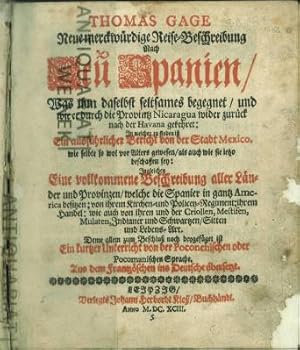 THOMAS GAGE
Neue merckwürdige Reise-Beschreibung
Nach
Neu Spanien/
Was ihm daselbst seltsames begegnet/ und
wie er durch die Provintz Nicaragua wider zurück
nach der Havana gekehret:
In welcher zu finden ist
Ein ausführlicher Bericht von der Stadt Mexico,
wie selbe so wol vor Alters gewesen/ als auch wie sie jetzo
beschaffen sey:
Ingleichen
Eine vollkommene Beschreibung aller Län-
der und Provinzen/ welche die Spanier in gantz Ame-
rica besitzen; von ihrem Kirchen- und Policey-Regiment; ihrem
Handel; wie auch von ihren und der Criollen, Mestitien,
Mulaten, Indianer und Schwartzen, Sitten
und Lebens-Art.
Deme allem zum Beschluß noch beygefüget ist
Ein kurtzer Unterricht von der Poconchischen oder
Pocomanischen Sprache.
Aus dem Frantzösischen ins Deutsche übersetzt.
LEIPZIG/
Verlegts Johann Herbordt Kloß/ Buchhändl.
Anno M.DC.XCIII.
5
ANTIQUARIAT
WELWERK